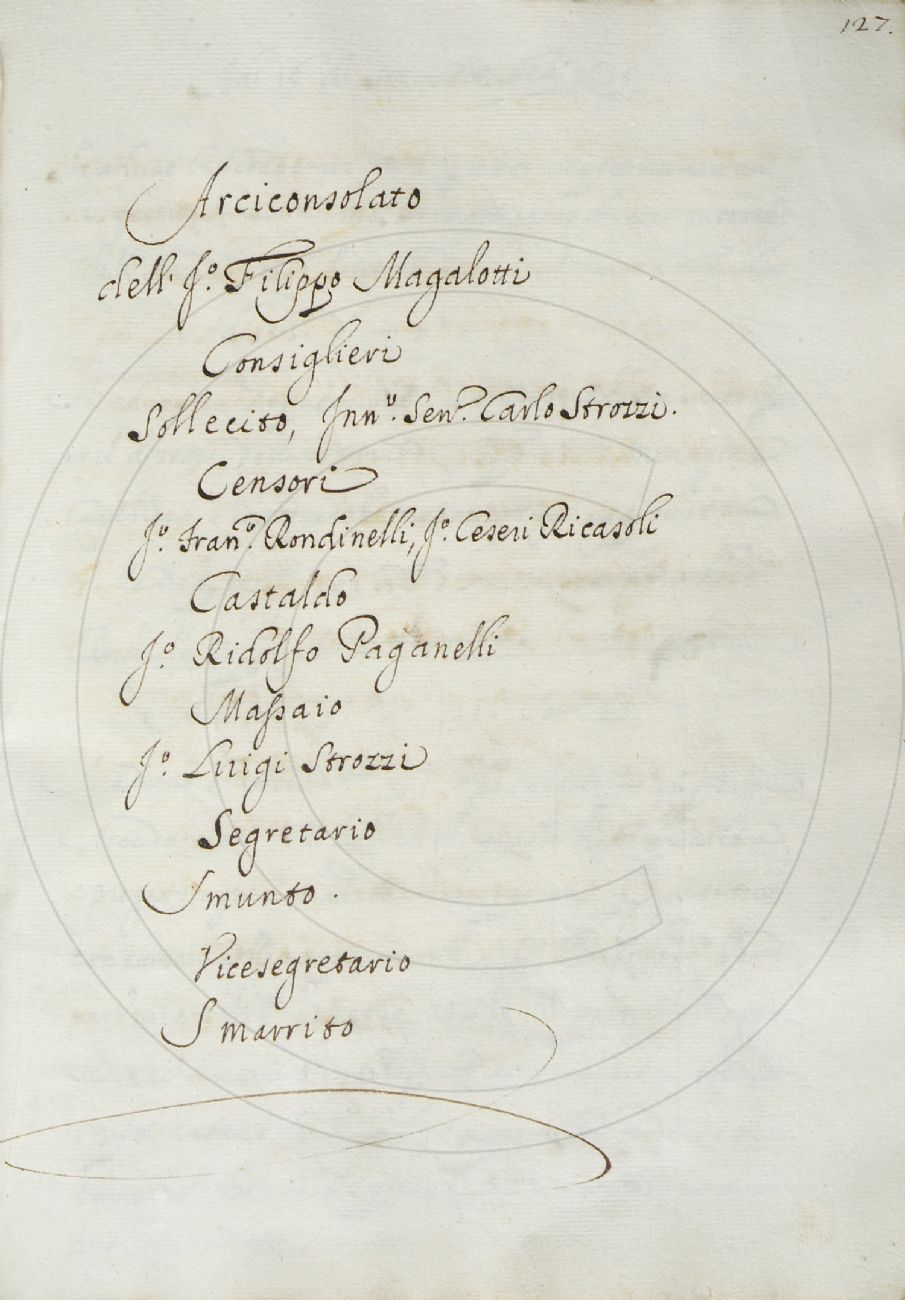 127.
Arciconsolato
dell' J.º Filippo Magalotti
Consiglieri
Sollecito, Innº. Senº. Carlo Strozzi.
Censori
Jº. Franº. Rondinelli, Jº. Ceseri Ricasoli
Castaldo
Jº. Ridolfo Paganelli
Massaio
Jº. Luigi Strozzi
Segretario
Smunto.
Vicesegretario
Smarrito